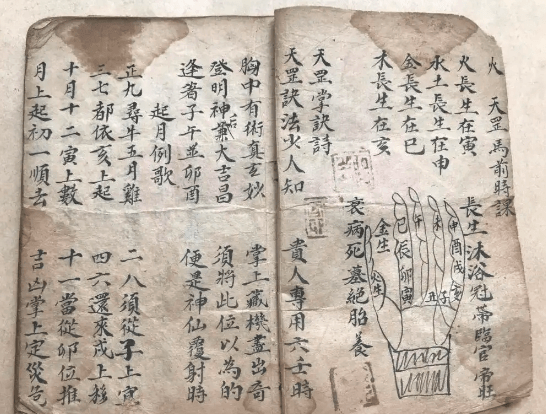 火 天罡馬前時課
火長生在寅 長生沐浴冠帶臨官帝旺
水土長生在申
金長生在巳
木長生在亥
申酉戌亥
未
午
巳辰卯寅
丑子
金生
衰病死墓絕胎養
天罡掌訣詩
天罡訣法少人知 貴人專用六壬時
胸中有術真玄妙 掌上藏機盡出奇
登明神后兼大吉昌 須將此位以為的
逢著子午並卯酉 便是神仙覆射時
起月例歌
正九尋牛五月雞 二八須從子上
三七都依亥上起 四六還來戌上移
十月十二寅上數 十一當從卯位推
月上起初一順去 吉凶掌上定災